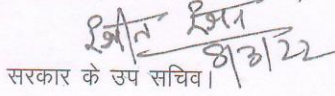 8/3/22
सरकार के उप सचिव।